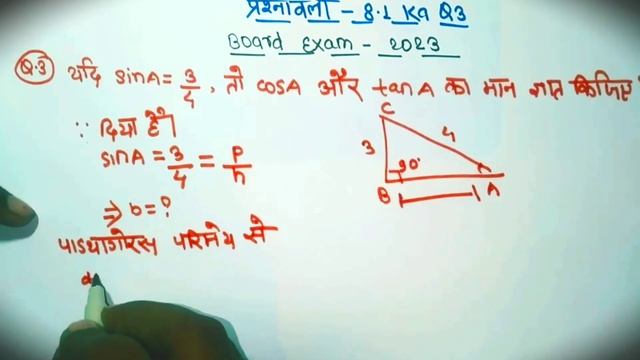 प्रश्नावली - 8.1 Ka Q3
Board Exam - 2023
Q.3 यदि sinA = 3/4, तो cosA और tanA का मान ज्ञात किजिए
∵ दिया है।
sinA = 3/4 = P/h
⇒ b = ?
पाइथागोरस परिमेय से
C
3
4
90°
B
A